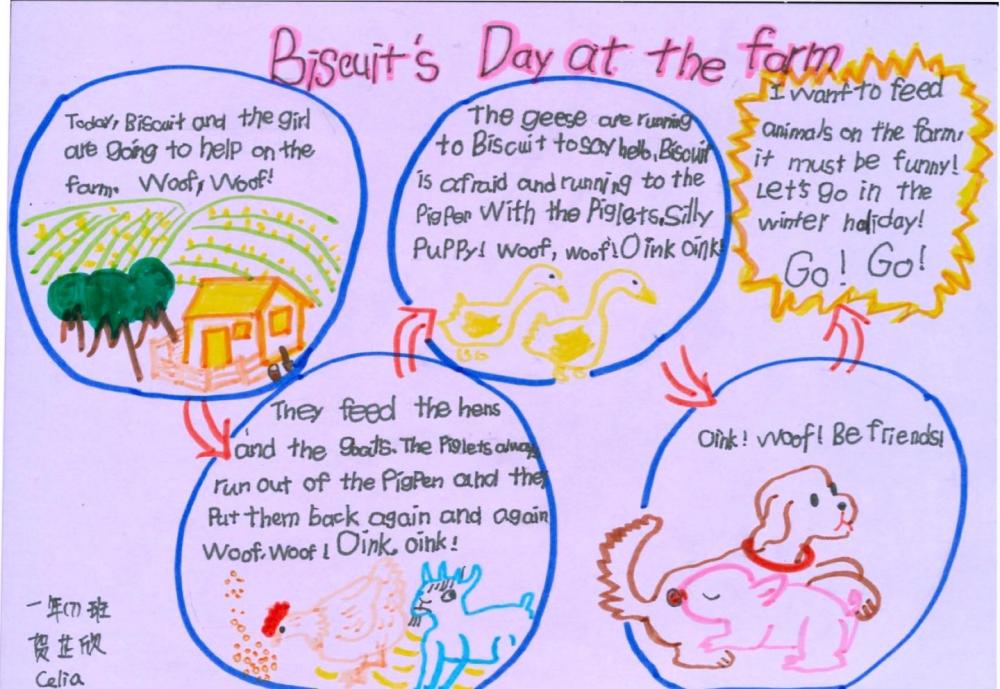 Biscuit's Day at the farm
Today, Biscuit and the girl
are going to help on the
farm. Woof, Woof!
They feed the hens
and the goats. The Piglets always
run out of the PigPen and they
Put them back again and again
Woof. Woof! Oink, oink!
The geese are running
to Biscuit to say hello. Biscuit
is afraid and running to the
PigPen With the Piglets. Silly
PuPPy! Woof, woof! Oink oink!
Oink! Woof! Be friends!
I want to feed
animals on the farm,
it must be funny!
Let's go in the
winter holiday!
Go! Go!
一年(7)班
贺芷欣
Celia